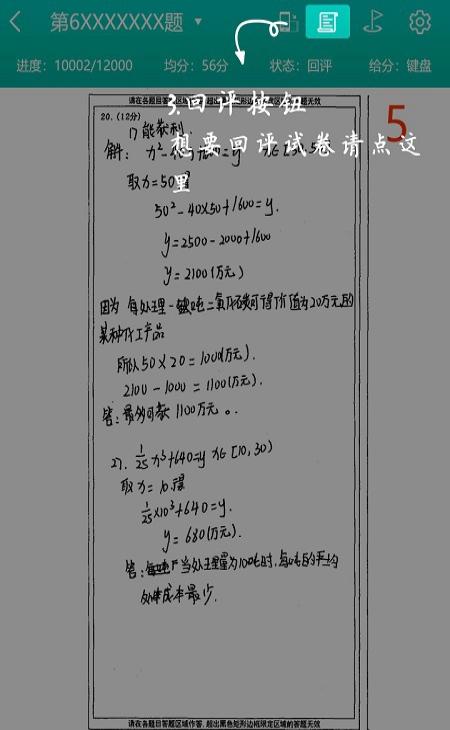 第6XXXXXXX题
进度：10002/12000 均分：56分 状态：回评 给分：键盘
请在各题目答题区域作答，超出黑色矩形边框限定区域的答题无效
20.(12分)
3.回评按钮
5
1) 能获利
想要回评试卷请点这
里
解：
取x=50得
50²-40×50+1600=y.
y=2500-2000+1600
y=2100(万元)
因为 每处理一吨二氧化碳可得价值为20万元的
某种化工产品
所以50×20=1000(万元).
2100-1000=1100(万元).
答：最多可获1100万元。
2). 1/25 x³+640=y x∈[10,30)
取x=10得
1/25×10³+640=y.
y=680(万元).
答：当处理量为10吨时,每吨的平均
处理成本最少.
请在各题目答题区域作答，超出黑色矩形边框限定区域的答题无效